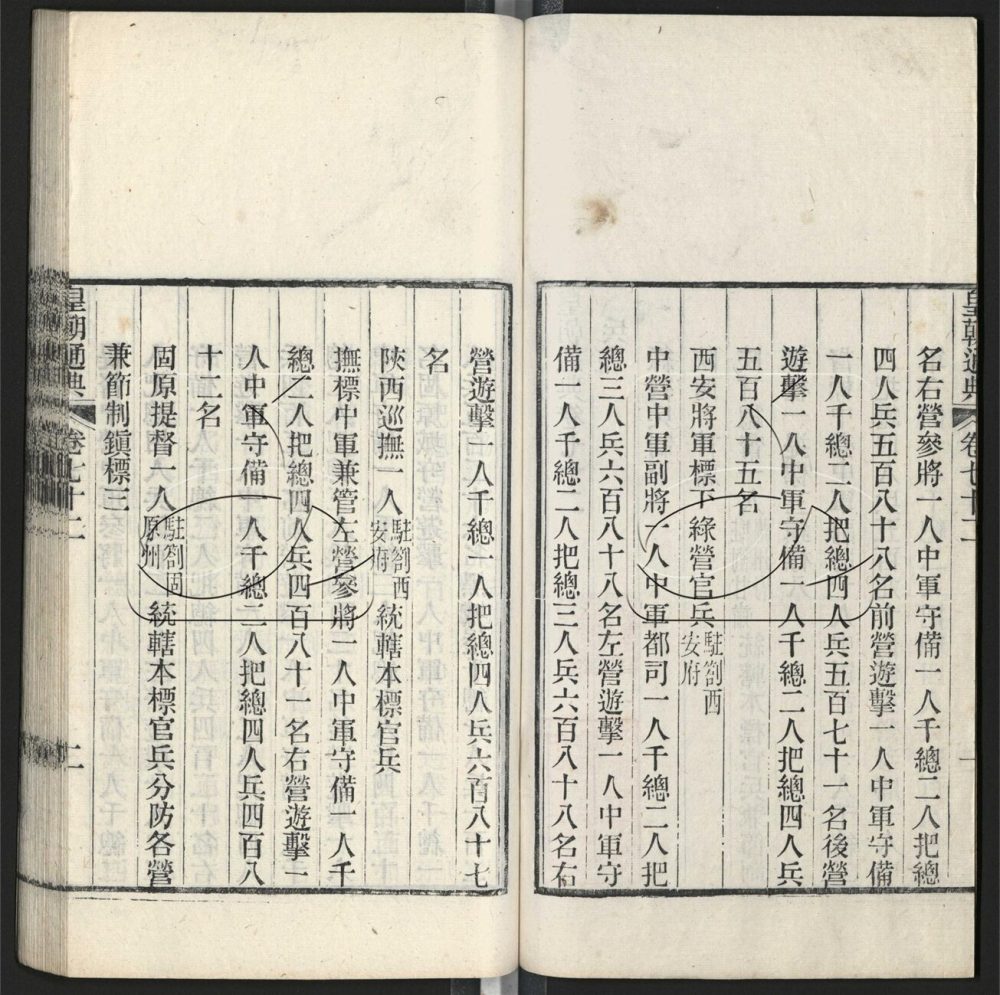 皇朝通典 卷七十二
名右營參將一人中軍守備一人千總二人把總
四人兵五百八十八名前營遊擊一人中軍守備
一人千總二人把總四人兵五百七十一名後營
遊擊一人中軍守備一人千總二人把總四人兵
五百八十五名
西安將軍標下綠營官兵駐劄西安府
中營中軍副將一人中軍都司一人千總二人把
總三人兵六百八十八名左營遊擊一人中軍守
備一人千總二人把總三人兵六百八十八名右
營遊擊一人千總一人把總四人兵六百八十七
名
陝西巡撫一人駐劄西安府統轄本標官兵
撫標中軍兼管左營參將一人中軍守備一人千
總二人把總四人兵四百八十一名右營遊擊一
人中軍守備一人千總二人把總四人兵四百八
十二名
固原提督一人駐劄固原州統轄本標官兵分防各營
兼節制鎮標三
皇朝通典 卷七十二 二